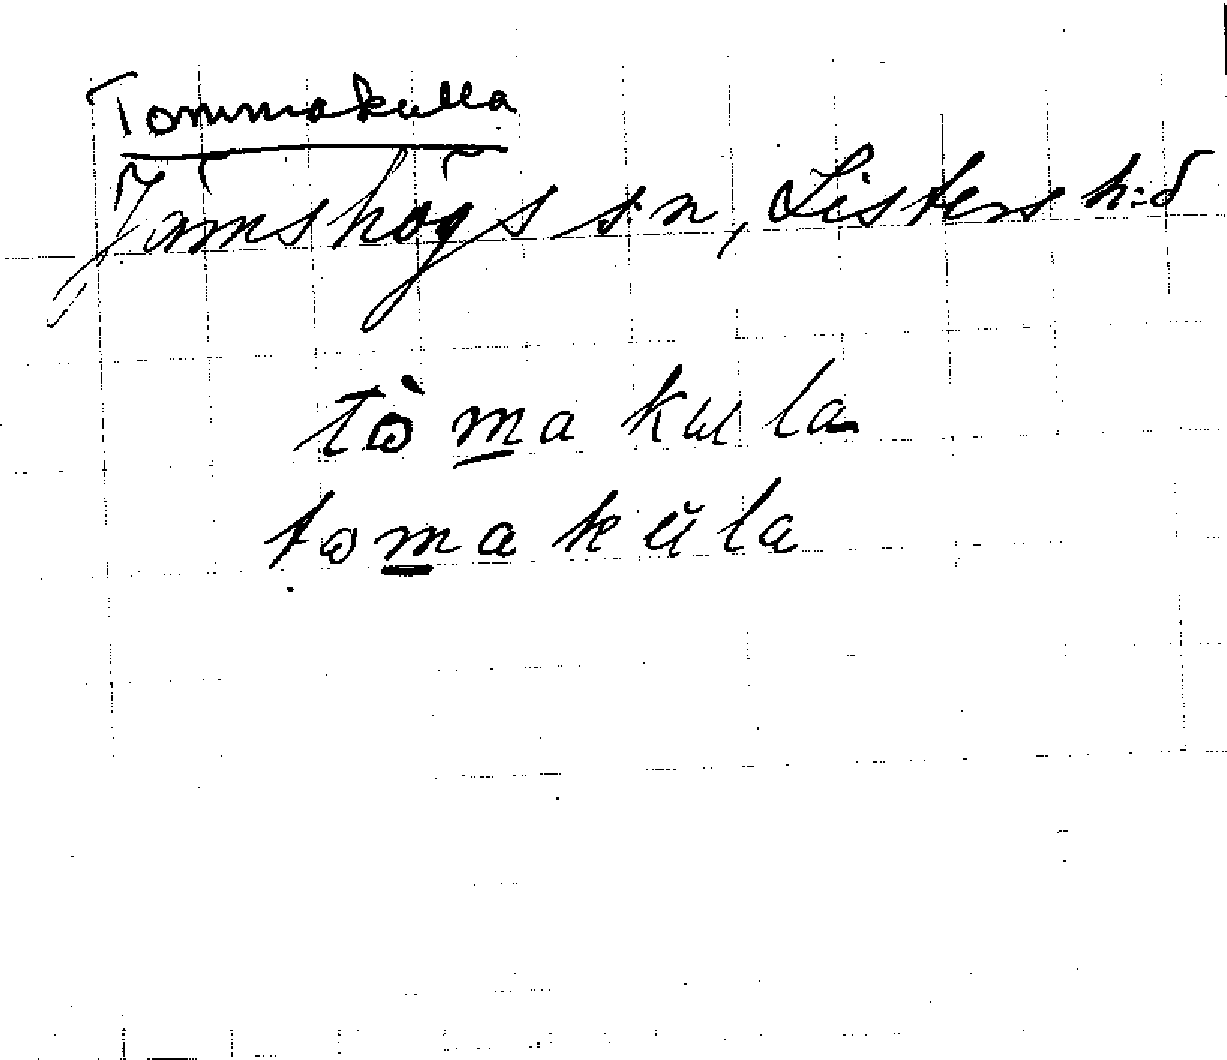 Tommakulla
Jämshögs s:n, Listers h:d
tò̵makula
tomakŭla